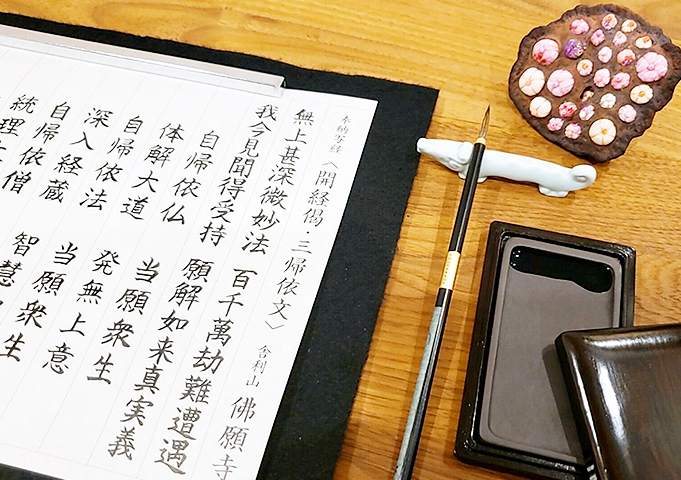 奉納写経〈開経偈・三帰依文〉 舎利山 佛願寺
無上甚深微妙法 百千萬劫難遭遇
我今見聞得受持 願解如来真実義
自帰依仏 当願衆生
体解大道 発無上意
自帰依法 当願衆生
深入経蔵 智慧
自帰依僧
統理大